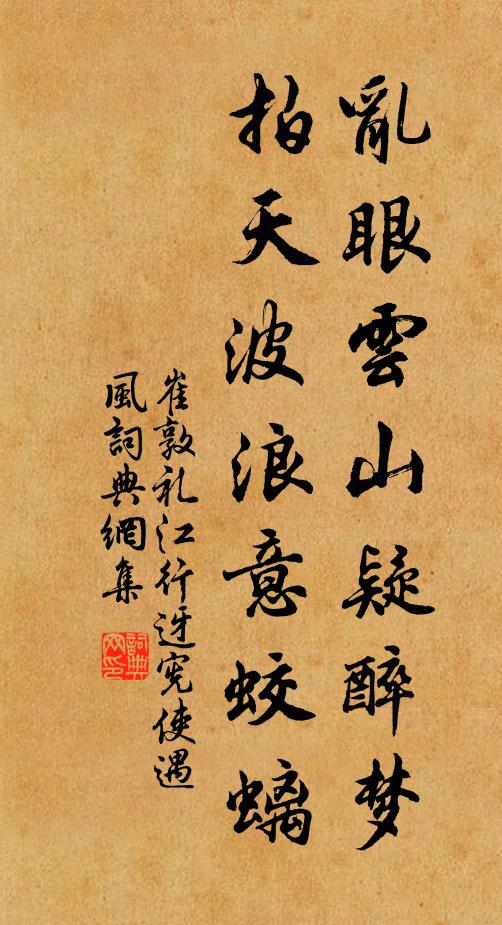 亂眼雲山疑醉梦
拍天波浪意蛟螭
崔敦礼江行迓宪使遇
風詞典網集
詞典
网印